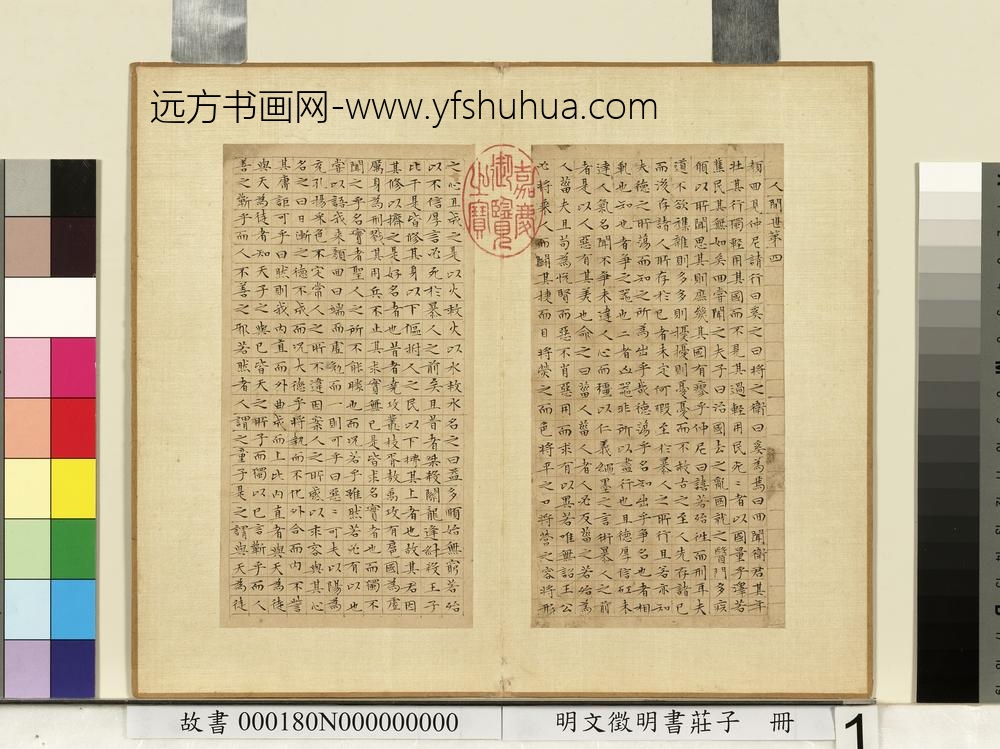 远方书画网-www.yfshuhua.com
嘉慶
御覽
之寶
人間世第四
顏回見仲尼請行曰奚之曰將之衛曰奚為焉曰回聞衛君其年
壯其行獨輕用其國而不見其過輕用民死〻者以國量乎澤若
蕉民其無如矣回嘗聞之夫子曰治國去之亂國就之醫門多疾
願以所聞思其則庶幾其國有瘳乎仲尼曰譆若殆往而刑耳夫
道不欲雜雜則多多則擾擾則憂憂而不救古之至人先存諸己
而後存諸人所存於己者未定何暇至於暴人之所行且若亦知
夫德之所蕩而知之所為出乎哉德蕩乎名知出乎爭名也者相
軋也知也者爭之器也二者凶器非所以盡行也且德厚信矼未
達人氣名聞不爭未達人心而彊以仁義繩墨之言術暴人之前
者是以人惡有其美也命之曰菑人菑人者人必反菑之若殆為
人菑夫且苟為悅賢而惡不肖惡用而求有以異若唯無詔王公
必將乘人而鬭其捷而目將熒之而色將平之口將營之容將形
之心且成之是以火救火以水救水名之曰益多順始無窮若殆
以不信厚言必死於暴人之前矣且昔者桀殺關龍逢紂殺王子
比干是皆修其身以下傴拊人之民以下拂其上者也故其君因
其修以擠之是好名者也昔者堯攻叢枝胥敖禹攻有扈國為虛
厲身為刑戮其用兵不止其求實無已是皆求名實者也而獨不
聞之乎名實者聖人之所不能勝也而況若乎雖然若必有以也
嘗以語我來顏回曰端而虛勉而一則可乎曰惡〻可夫以陽為
充孔揚采色不定常人之所不違因案人之所感以求容與其心
名之曰日漸之德不成而況大德乎將執而不化外合而內不訾
其庸詎可乎曰然則我內直而外曲成而上比內直者與天為徒
與天為徒者知天子之與己皆天之所子而獨以己言蘄乎而人
善之蘄乎而人不善之邪若然者人謂之童子是之謂與天為徒
故書 000180N000000000
明文徵明書莊子 冊
1